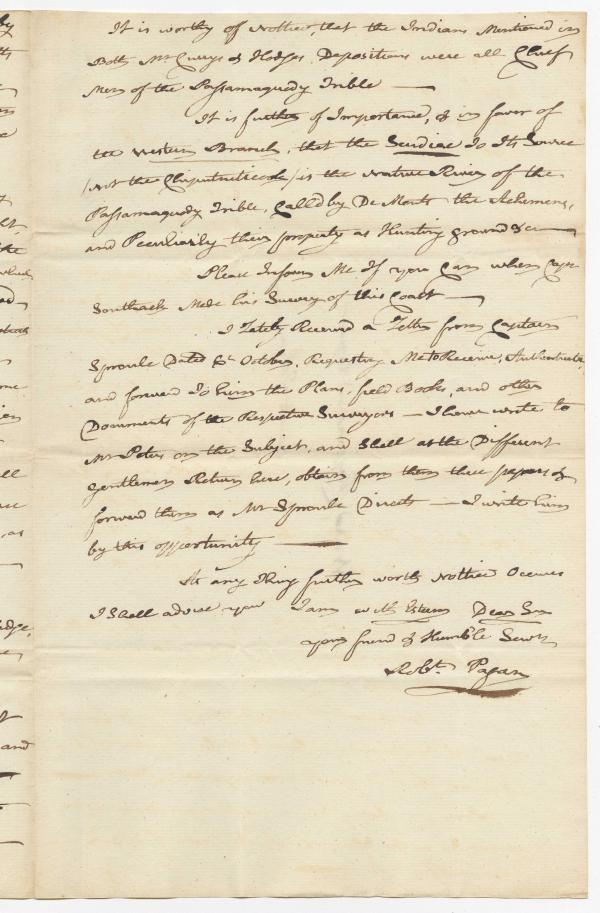 It is worthy of Nottice, that the Indians Mentioned in
Both Mr Currys & Hodges Depositions were all Chief
Men of the Passamaquody Tribe
It is further of Importance, & in favor of
the Western Branch, that the Scudiac to Its Source
(not the Chiputneticook) is the Native River of the
Passamaquody Tribe, Calld by De Monts the Etchemens,
and Peculiarily their property as Hunting ground &c
Please Inform Me If you Can when Capt
Southack Made his Survey of this Coast
I Lately Received a Letter from Captain
Sproule Dated October, Requesting Me to Receive, Authenticate,
and forward To him the Plans, field Books, and other
Documents of the Respective Surveyors — I have wrote to
Mr Peters on the Subject, and Shall as the Different
Gentlemen Return here, obtain from them their papers &
forward them as Mr Sproule Directs — I write him
by this opportunity
If any thing further worth Nottice Occurs
I Shall advise you I am with Esteem Dear Sir
your friend & Humble Servt
Robt Pagan